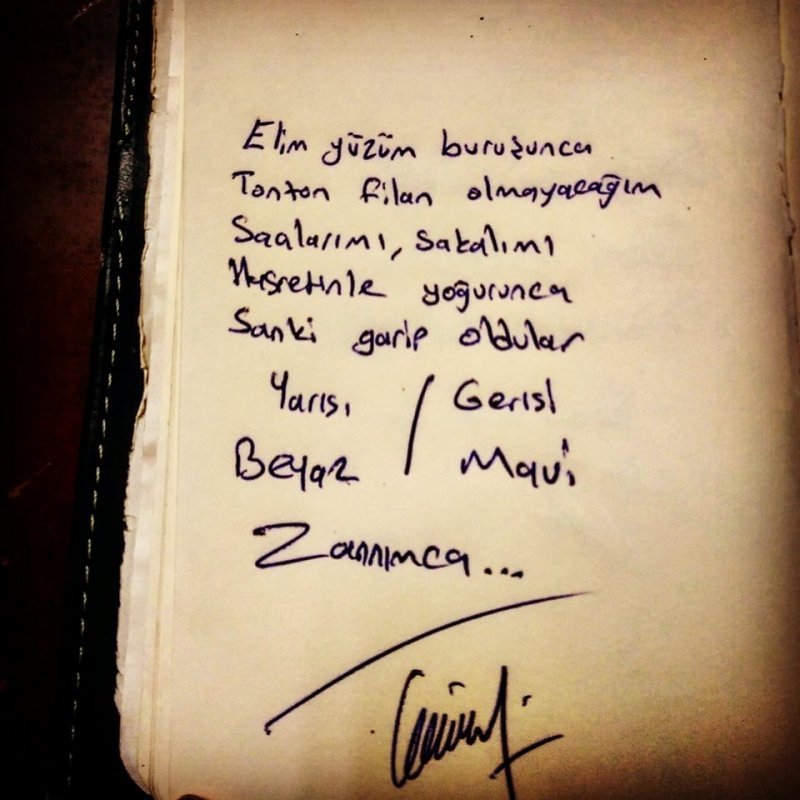 Elim yüzüm buruşunca
Tonton filan olmayacağım
Saçlarımı, sakalımı
yoğurunca
Sanki garip oldular
Yarısı / Gerisi
Beyaz / Mavi
Zannımca...